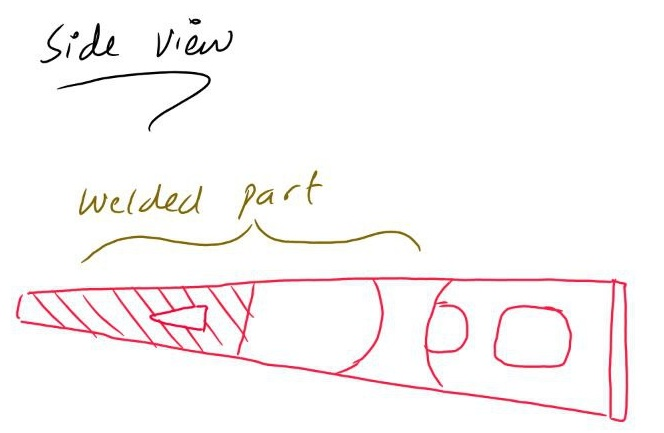 Side View
Welded part